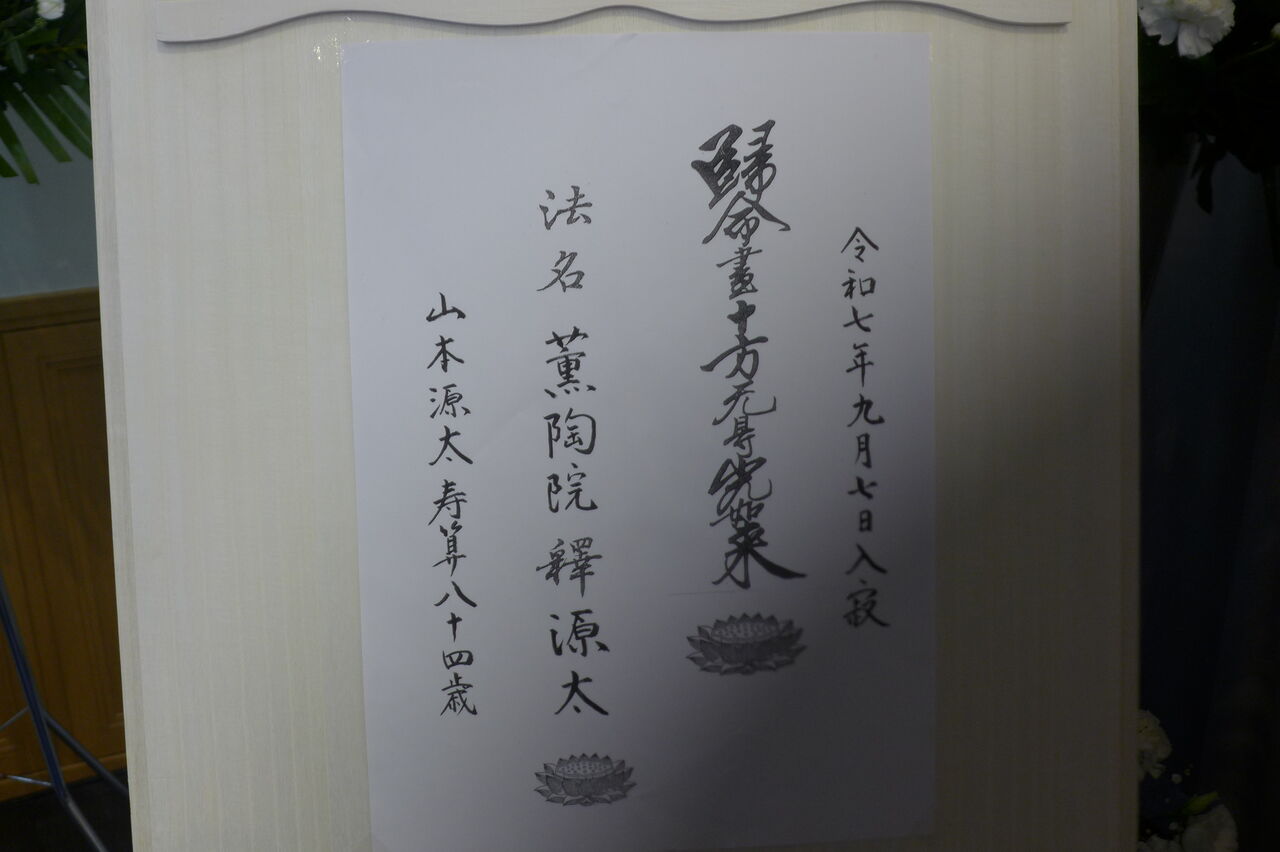 令和七年九月七日入寂
歸命盡十方无㝵光如来
法名 薫陶院 釋源太
山本源太 寿算八十四歳